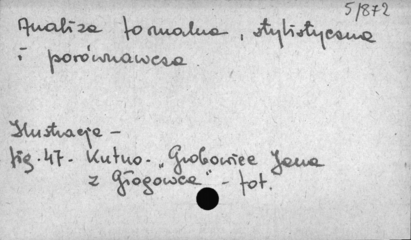 5/872
Analiza formalna, stylistyczna
i porównawcza.
Ilustracje -
fig. 47. Kutno. "Grobowiec Jana
z Głogowca" - fot.